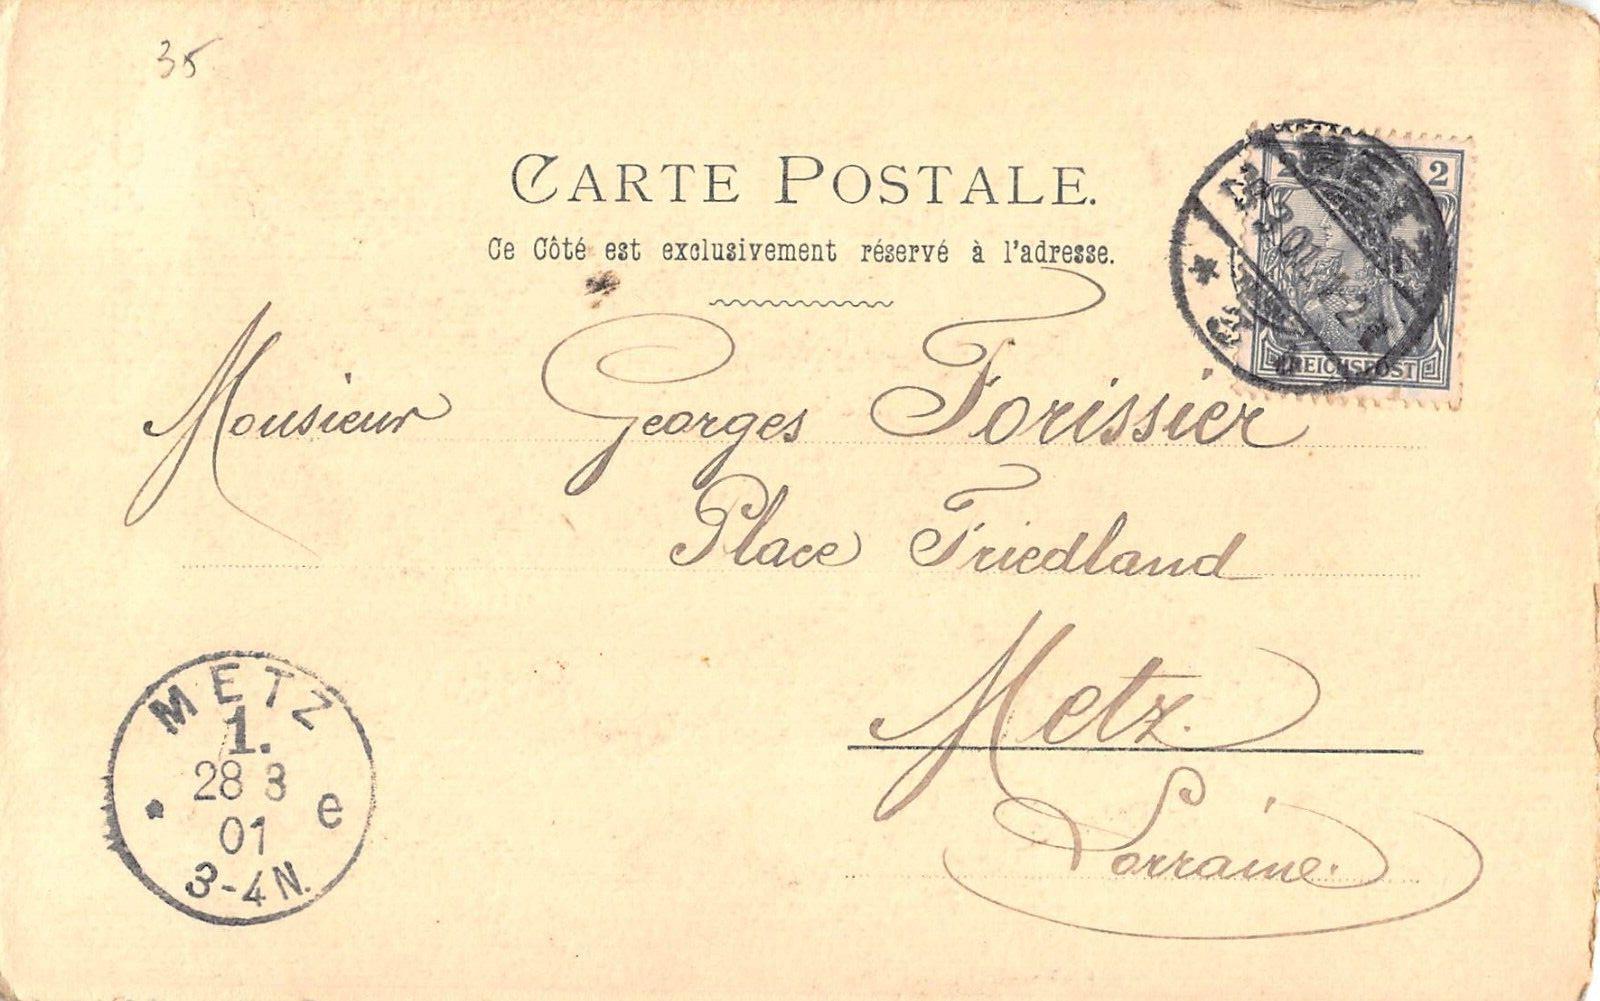 35
CARTE POSTALE.
Ce Côté est exclusivement réservé à l'adresse.
2 2
METZ
REICHSPOST
Monsieur Georges Forissier
Place Friedland
Metz.
Lorraine.
METZ
1.
28 3
01
e
3-4N.